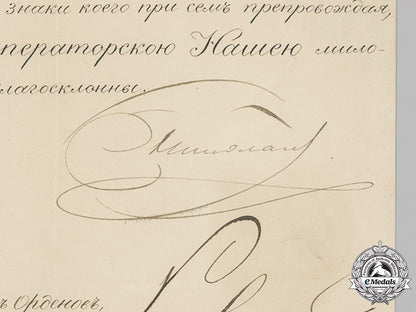 знаки коего при семъ препровождая,
ператорскою Нашею мило-
лагосклонны.
Николай
ъ Орденовъ,
eMedals